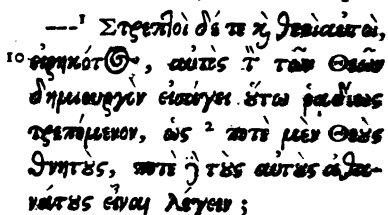 —¹ Στρεπτοὶ δέ τε κỳ θεοὶ αὐτοὶ,
10 εἰρηκότος, αὐτὸς τ̀ τῶν Θεῶν
δημιουργὸν εἰσάγει ὕτω ῥᾳδίως
τρεπόμενον, ὡς ² ποτὲ μὲν Θεὺς
θνητὺς, ποτὲ ἢ τὺς αὐτὺς ἀθα-
νάτυς εἶναι λέγειν;